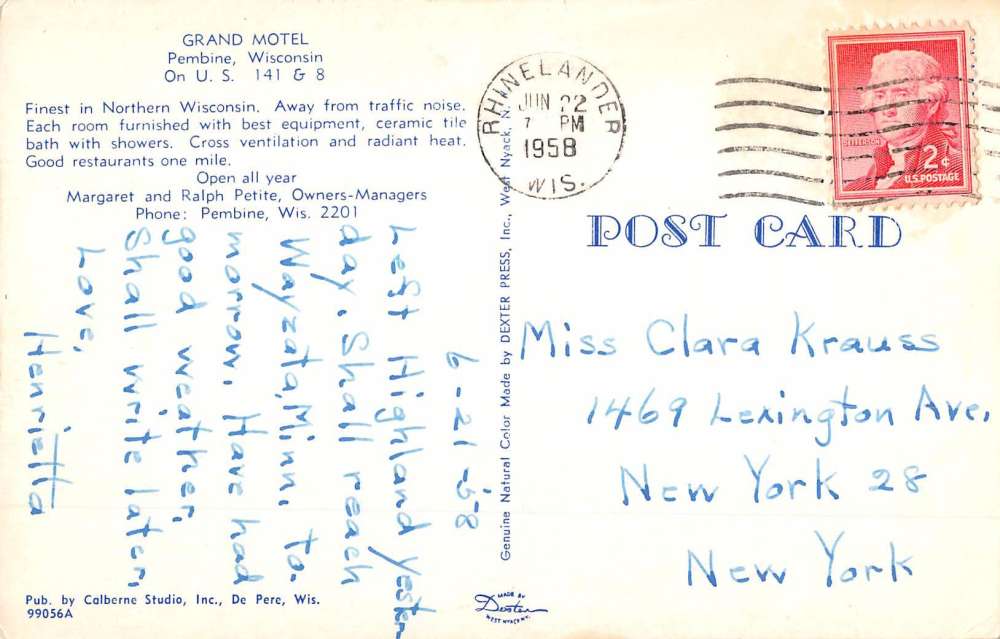 GRAND MOTEL
Pembine, Wisconsin
On U. S. 141 & 8
Finest in Northern Wisconsin. Away from traffic noise.
Each room furnished with best equipment, ceramic tile
bath with showers. Cross ventilation and radiant heat.
Good restaurants one mile.
Open all year
Margaret and Ralph Petite, Owners-Managers
Phone: Pembine, Wis. 2201
6-21-58
Left Highland yester-
day. Shall reach
Wayzata, Minn. to-
morrow. Have had
good weather.
Shall write later.
Love,
Henrietta
Pub. by Calberne Studio, Inc., De Pere, Wis.
99056A
Genuine Natural Color Made by DEXTER PRESS, Inc., West Nyack, N.
MADE BY
Dexter
WEST NYACK N.Y.
RHINELANDER
JUN 22
7 PM
1958
WIS.
JEFFERSON
2¢
U.S. POSTAGE
POST CARD
Miss Clara Krauss
1469 Lexington Ave.
New York 28
New York